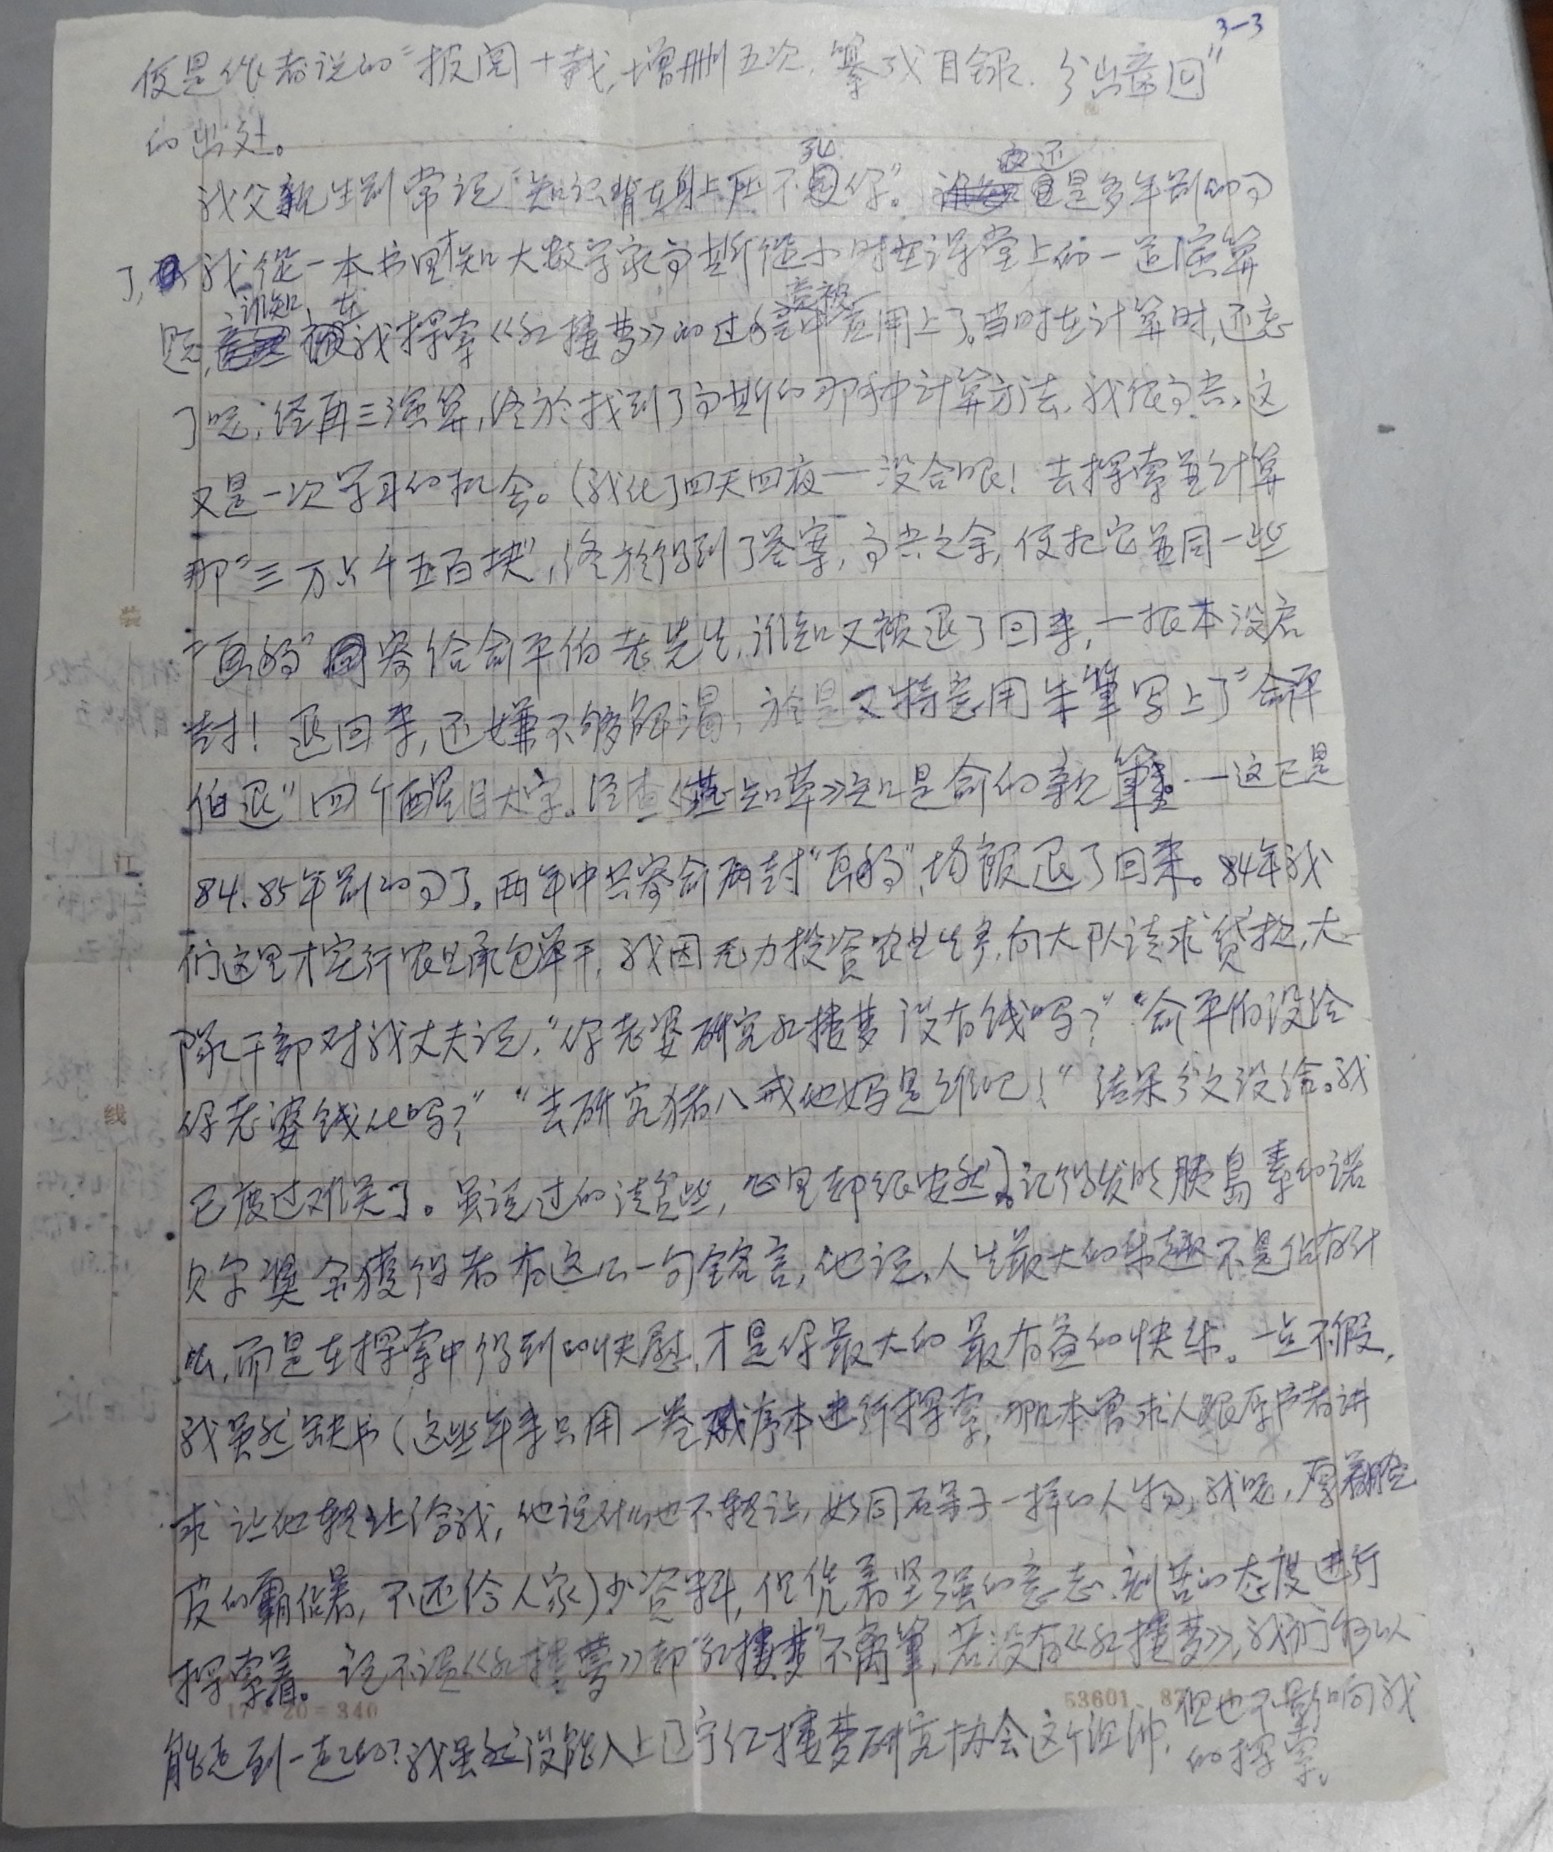 3—3
便是作者说的"披阅十载，增删五次，纂成目录，分出章回"
的出处。
我父亲生别常说"知识背在身上压不死你"。这还是多年别的了
了，我从一本书里知大数学家高斯从小时在课堂上的一道演算
题，谁知，在我探索《红楼梦》的过程中竟被应用上了。当时在计算时，还忘
了呢；经再三演算，终於找到了高斯的那种计算方法，我很高兴，这
又是一次学习的机会。（我化了四天四夜——没合眼！去探索並计算
那"三万六千五百块"，终於得到了答案，高兴之余，便把它並同一些
"函稿"寄给俞平伯老先生，谁知又被退了回来，—根本没启
封！退回来，还嫌不够解渴，於是又特意用朱筆写上了"俞平
伯退"四个醒目大字。经查《燕知草》知是俞的亲筆—这已是
84.85年别的了。两年中共寄俞两封"函稿"，均被退了回来。84年我
们这里才实行农业承包单干，我因无力投资农业生产，向大队请求贷款，大
队干部对我丈夫说，"你老婆研究红楼梦没有钱吗？""俞平伯没给
你老婆钱化吗？""去研究猪八戒他妈是谁吧！"结果分文没给。我
已度过难关了。虽说过的清贫些，心里却很安然）。记得发明胰岛素的诺
贝尔奖金獲得者有这么一句名言，他说，人生最大的乐趣不是佔有什
么，而是在探索中得到的快慰，才是你最大的最有益的快乐。一点不假，
我虽然缺书（这些年来只用一卷戚序本进行探索，那本曾求人跟原书者讲
求让他转让给我，他说什么也不转让，好同石呆子一样的人物，我呢，厚着脸
皮的霸佔着，不还给人家）少资料，但凭着坚强的意志、刻苦的态度进行
探索着。说不过《红楼夢》却"红楼梦"不离筆，若没有《红楼梦》，我们何以
17×20=340
53601.87
能走到一起的？我虽然没能入上辽宁红楼梦研究协会这个组织，但也不影响我
的探索。
装
订
线